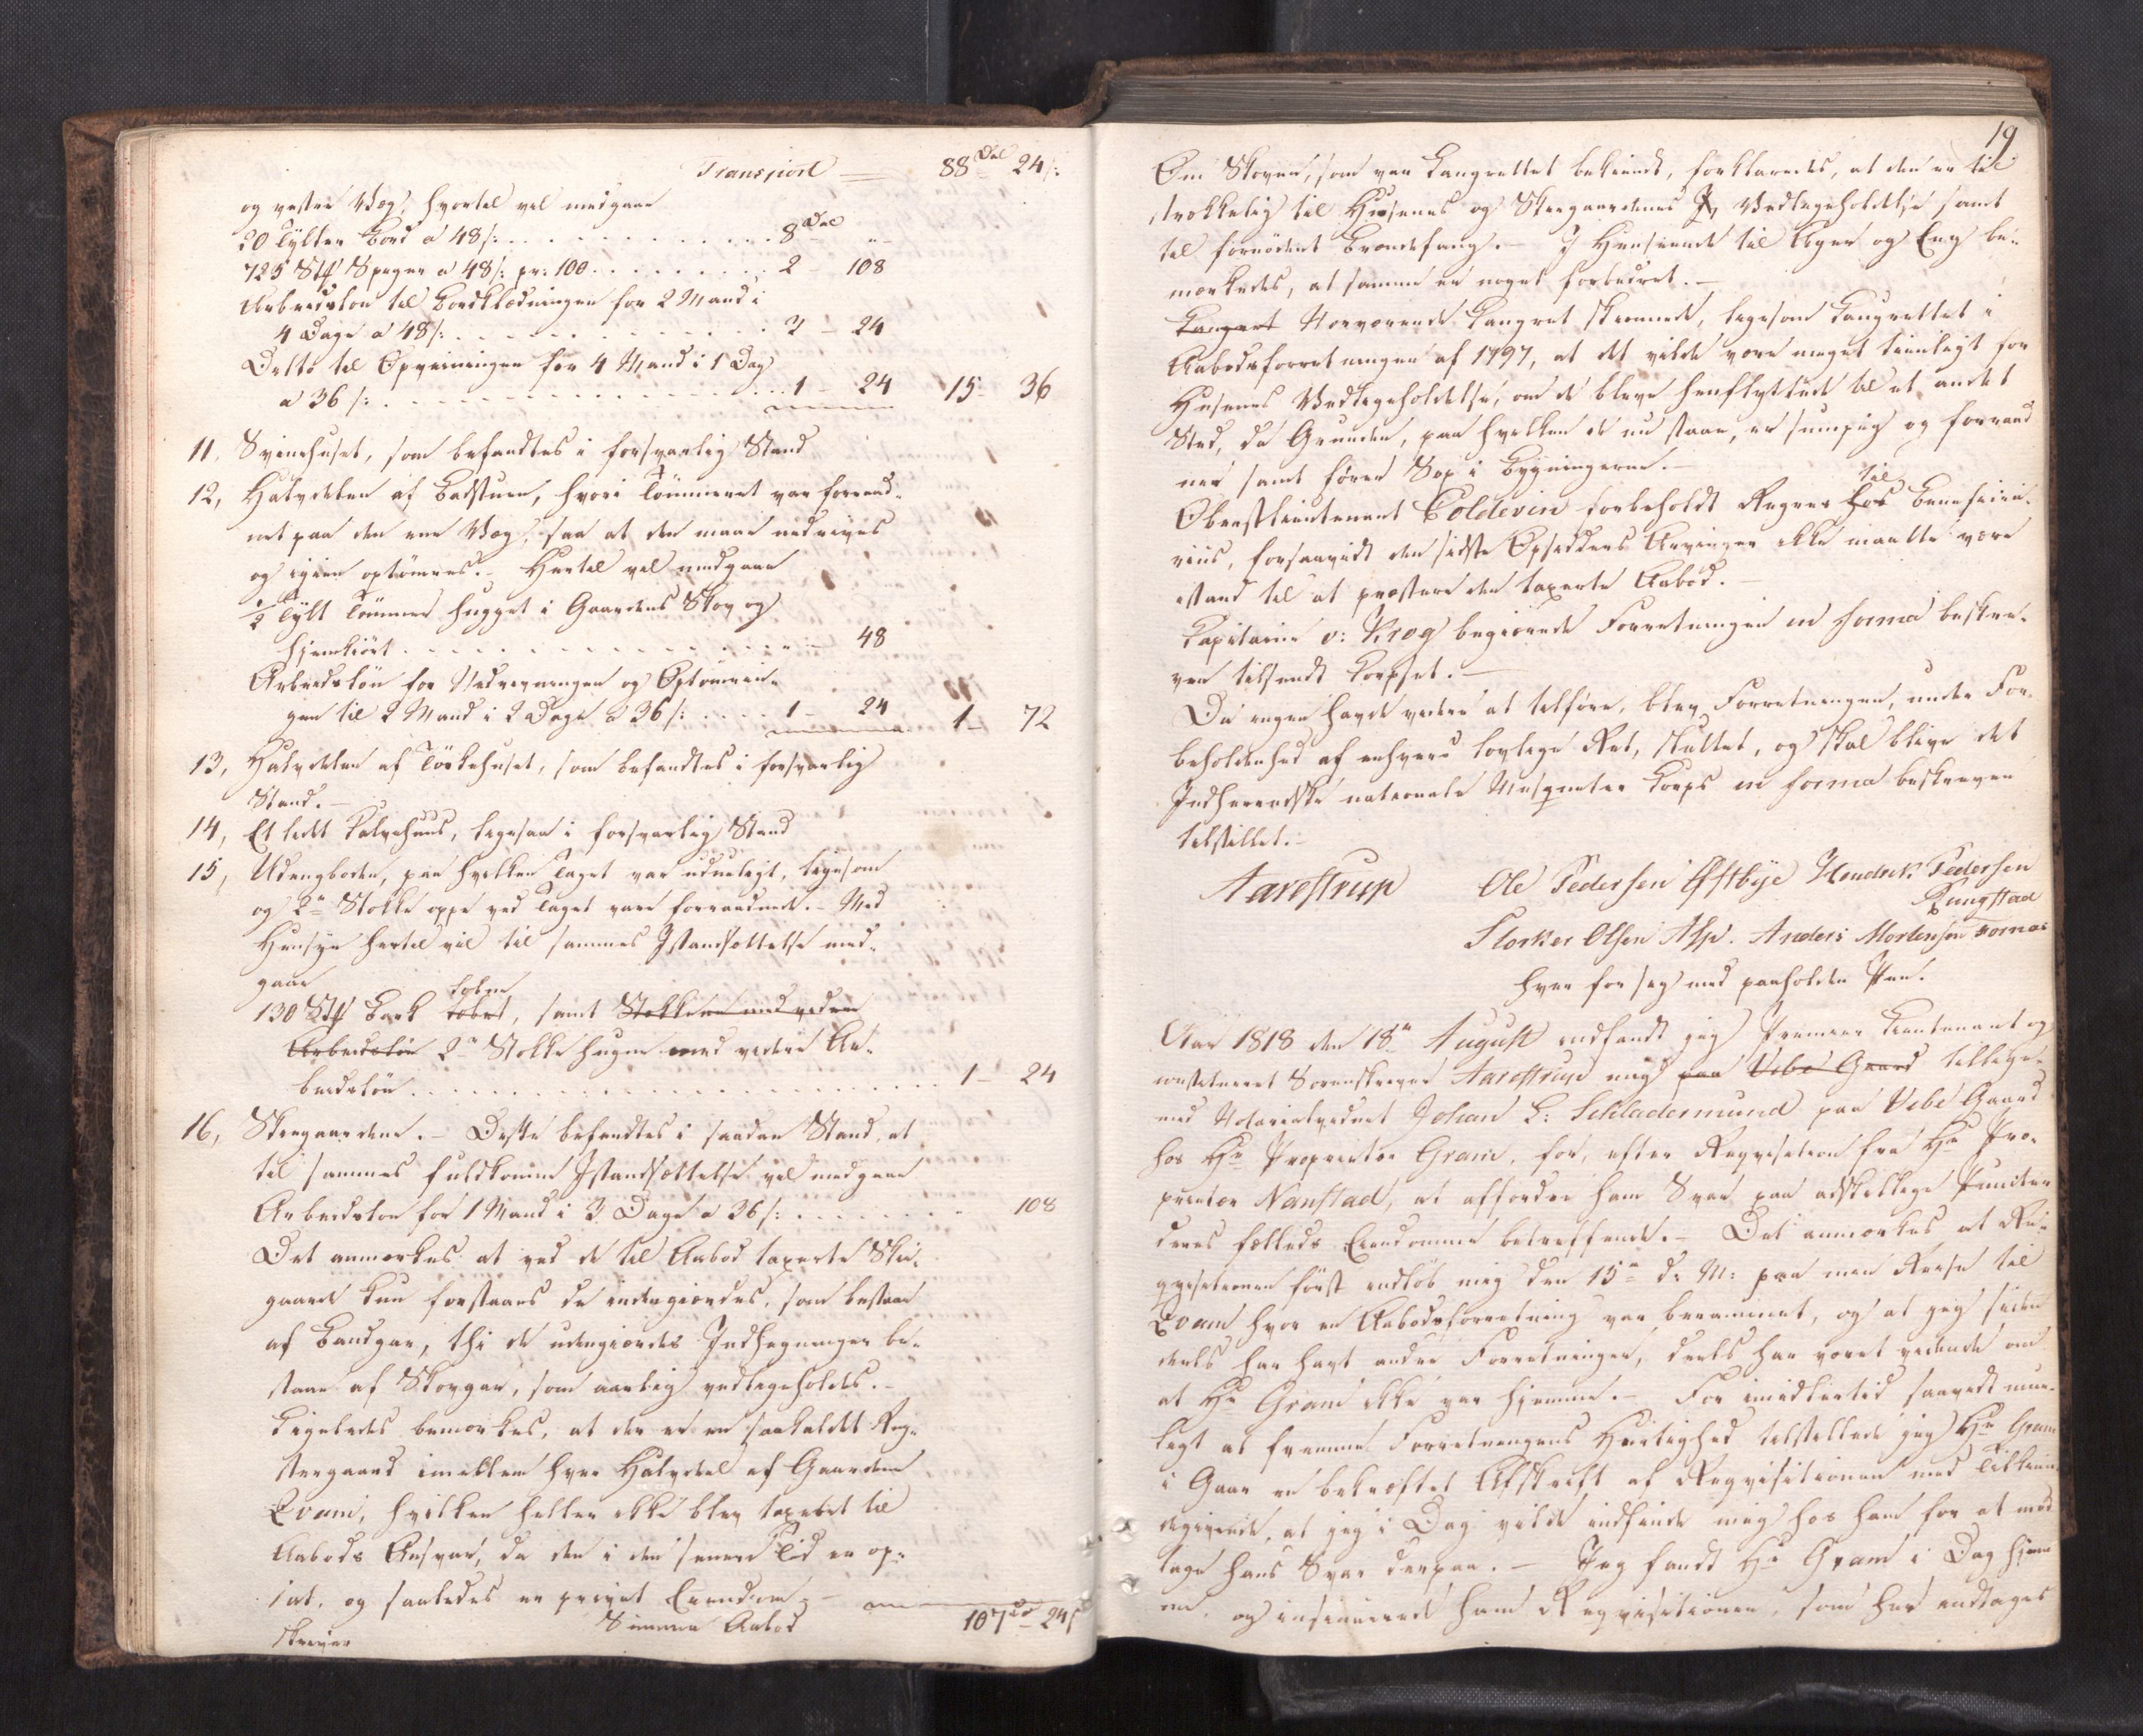 Transport — 88 Dal 24 s:
og vestre Væg, hvortil vil medgaae
20 Tylter Bord a 48 s: . . . . . . . . . . 8 Dal "
725 Stk Speger a 48 s: pr: 100 . . . . . . . . 2 - 108
Arbeidsløn til Bordklædningen for 2 Mand i
4 Dage a 48 s: . . . . . . . . . . 3 - 24
Ditto til Opveiningen for 4 Mand i 1 Dag
a 36 s: . . . . . . . . . . 1 - 24 15 - 36
11, Svinehuset, som befandtes i forsvarlig Stand
12, Halvdelen af Badstuen, hvori Tømmeret var forraad-
net paa den ene Væg, saa at den maae nedrives
og igien optømres. - Hertil vil medgaae
½ Tylt Tømmer hugget i Gaardens Skov og
hjemkiørt . . . . . . . . . . " - 48
Arbeidsløn for Nedrivningen og Optømrin-
gen til 2 Mand i 2 Dage a 36 s: . . . . 1 - 24 1 - 72
13, Halvdelen af Tørkehuset, som befandtes i forsvarlig
Stand. -
14, Et lidet Kalvehuus, ligesaa i forsvarlig Stand
15, Udengboden, paa hvilken Taget var udueligt, ligesom
og 2de Stokke oppe ved Taget vare forraadnede. - Med
Hensyn hertil vil til sammes Istandsættelse med-
gaae
130 Stk Bark løbet løbne, samt Stokkene med videre
Arbeidsløn 2de Stokke hugne med videre Ar-
beidsløn . . . . . . . . . . 1 - 24
16, Skeegaardene. - Disse befandtes i saadan Stand, at
til sammes fuldkomne Istandsættelse vil medgaae
Arbeidsløn for 1 Mand i 3 Dage a 36 s: . . . . . . . - 108
Det anmærkes at ved de til Aabod taxerte Skie-
gaarde kun forstaaes de indengierdes, som bestaae
af Bandgar, thi de udengierdes Indhegninger be-
staae af Skovgar, som aarlig vedligeholdes. -
Ligeledes bemærkes, at der er en saakaldet Reg-
stergaard imellem hver Halvdeel af Gaarden
Qvam, hvilken heller ikke blev taxeret til
Aabods Ansvar, da den i den senere Tid er op-
sat, og saaledes er privat Eiendom. -
Summa Aabod 107 Dr 24 s
skriver
19
Om Skoven, som var Laugrettet bekiendt, forklaredes, at den er til
strækkelig til Husenes og Skeegaardenes Vedligeholdelse samt
til fornødent Brændefang. - I Henseende til Ager og Eng be-
mærkedes, at samme er noget forbedret. -
Laugret Nærværende Laugret skiønnede, ligesom Laugrettet i
Aabodsforretningen af 1797, at det vilde være meget tienligt for
Husenes Vedligeholdelse, om de bleve henflyttede til et andet
Sted, da Grunden, paa hvilken de nu staae, er sumpig og forraad
ner samt fører Sop i Bygningerne. -
Oberstlieutenant Coldevin forbeholdt Regres hos til Beneficia-
riis, forsaavidt den sidste Opsidders Arvinger ikke maatte være
istand til at præstere den taxerte Aabod. -
Capitaine v: Krog begiærede Forretningen in forma beskre-
ven tilsendt Corpset. -
Da ingen havde videre at tilføre, blev Forretningen, under For-
beholdenhed af enhvers lovlige Ret, sluttet, og skal blive det
Indherredske nationale Musqueteer Corps in forma beskreven
tilstillet. -
Aarestrup Ole Pedersen Østbye Hendrik Pedersen
Rungstad
Storker Olsen Asp. Anders Mortensen Fornes
hver for sig med paaholden Pen.
Aar 1818 den 18de August indfandt jeg Premier Lieutenant og
constitueret Sorenskriver Aarestrup mig paa Vibe Gaard tillige-
med Notarialvidnet Johan L: Schladermund paa Vibe Gaard
hos Hr Proprietær Gram, for, efter Reqvisition fra Hr Pro-
prietær Nanstad, at affordre ham Svar paa adskillige Puncter
deres fælleds Eiendomme betreffende. - Det anmærkes at Re-
qvisitionen først indløb mig den 15de d: M: paa min Reise til
Qvam hvor en Aabodsforretning var berammet, og at jeg siden
deels har havt andre Forretninger, deels har været vidende om
at Hr Gram ikke var hjemme. - For imidlertid saavidt mue-
ligt at fremme Forretningens Hurtighed tilstillede jeg Hr Gram
i Gaar en bekræftet Afskrift af Reqvisitionen med Tilkien-
degivende, at jeg i Dag vilde indfinde mig hos ham for at mod
tage hans Svar derpaa. - Jeg fandt Hr Gram i Dag hjem
me, og insinuerede ham Reqvisitionen, som her indtages